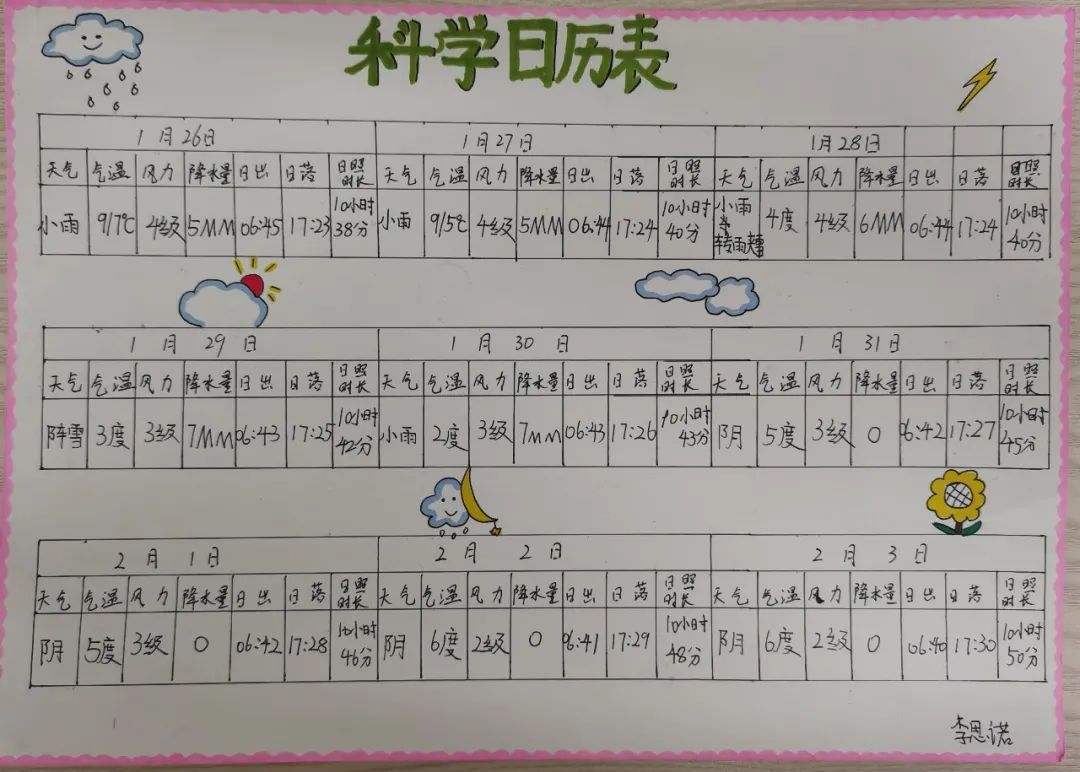 科学日历表
1月26日 1月27日 1月28日
天气 气温 风力 降水量 日出 日落 日照时长 天气 气温 风力 降水量 日出 日落 日照时长 天气 气温 风力 降水量 日出 日落 日照时长
小雨 9/7℃ 4级 5MM 06:45 17:23 10小时38分 小雨 9/5℃ 4级 5MM 06:44 17:24 10小时40分 小雨转雨夹雪 4度 4级 6MM 06:44 17:24 10小时40分
1月29日 1月30日 1月31日
天气 气温 风力 降水量 日出 日落 日照时长 天气 气温 风力 降水量 日出 日落 日照时长 天气 气温 风力 降水量 日出 日落 日照时长
阵雪 3度 3级 7MM 06:43 17:25 10小时42分 小雨 2度 3级 7MM 06:43 17:26 10小时43分 阴 5度 3级 0 06:42 17:27 10小时45分
2月1日 2月2日 2月3日
天气 气温 风力 降水量 日出 日落 日照时长 天气 气温 风力 降水量 日出 日落 日照时长 天气 气温 风力 降水量 日出 日落 日照时长
阴 5度 3级 0 06:42 17:28 10小时46分 阴 6度 2级 0 06:41 17:29 10小时48分 阴 6度 2级 0 06:40 17:30 10小时50分
李思诺